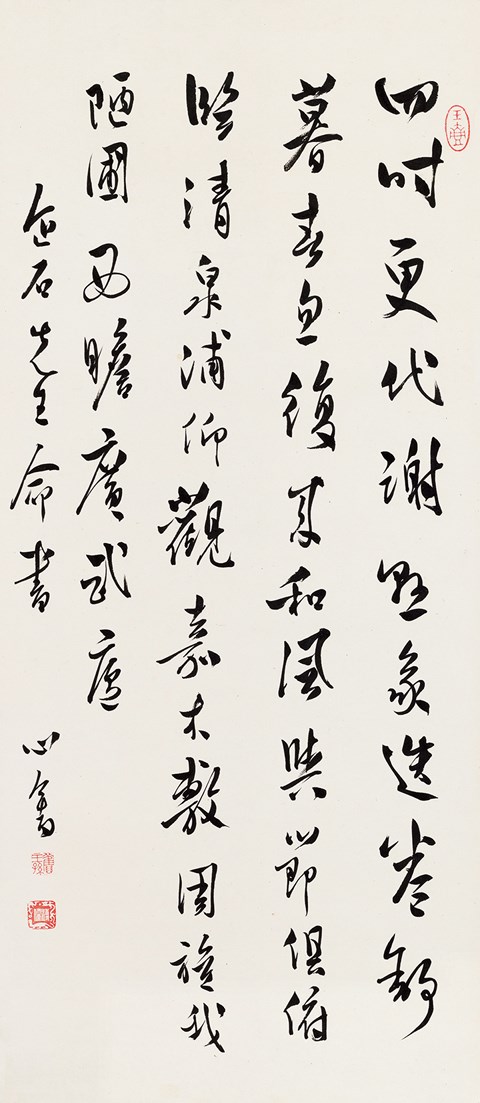 四時更代謝懸象迭卷舒
暮春忽復來和風與節俱俯
臨清泉涌仰觀嘉木敷周旋我
陋圃西瞻廣武廬
企石先生命書 心畬
舊王孫